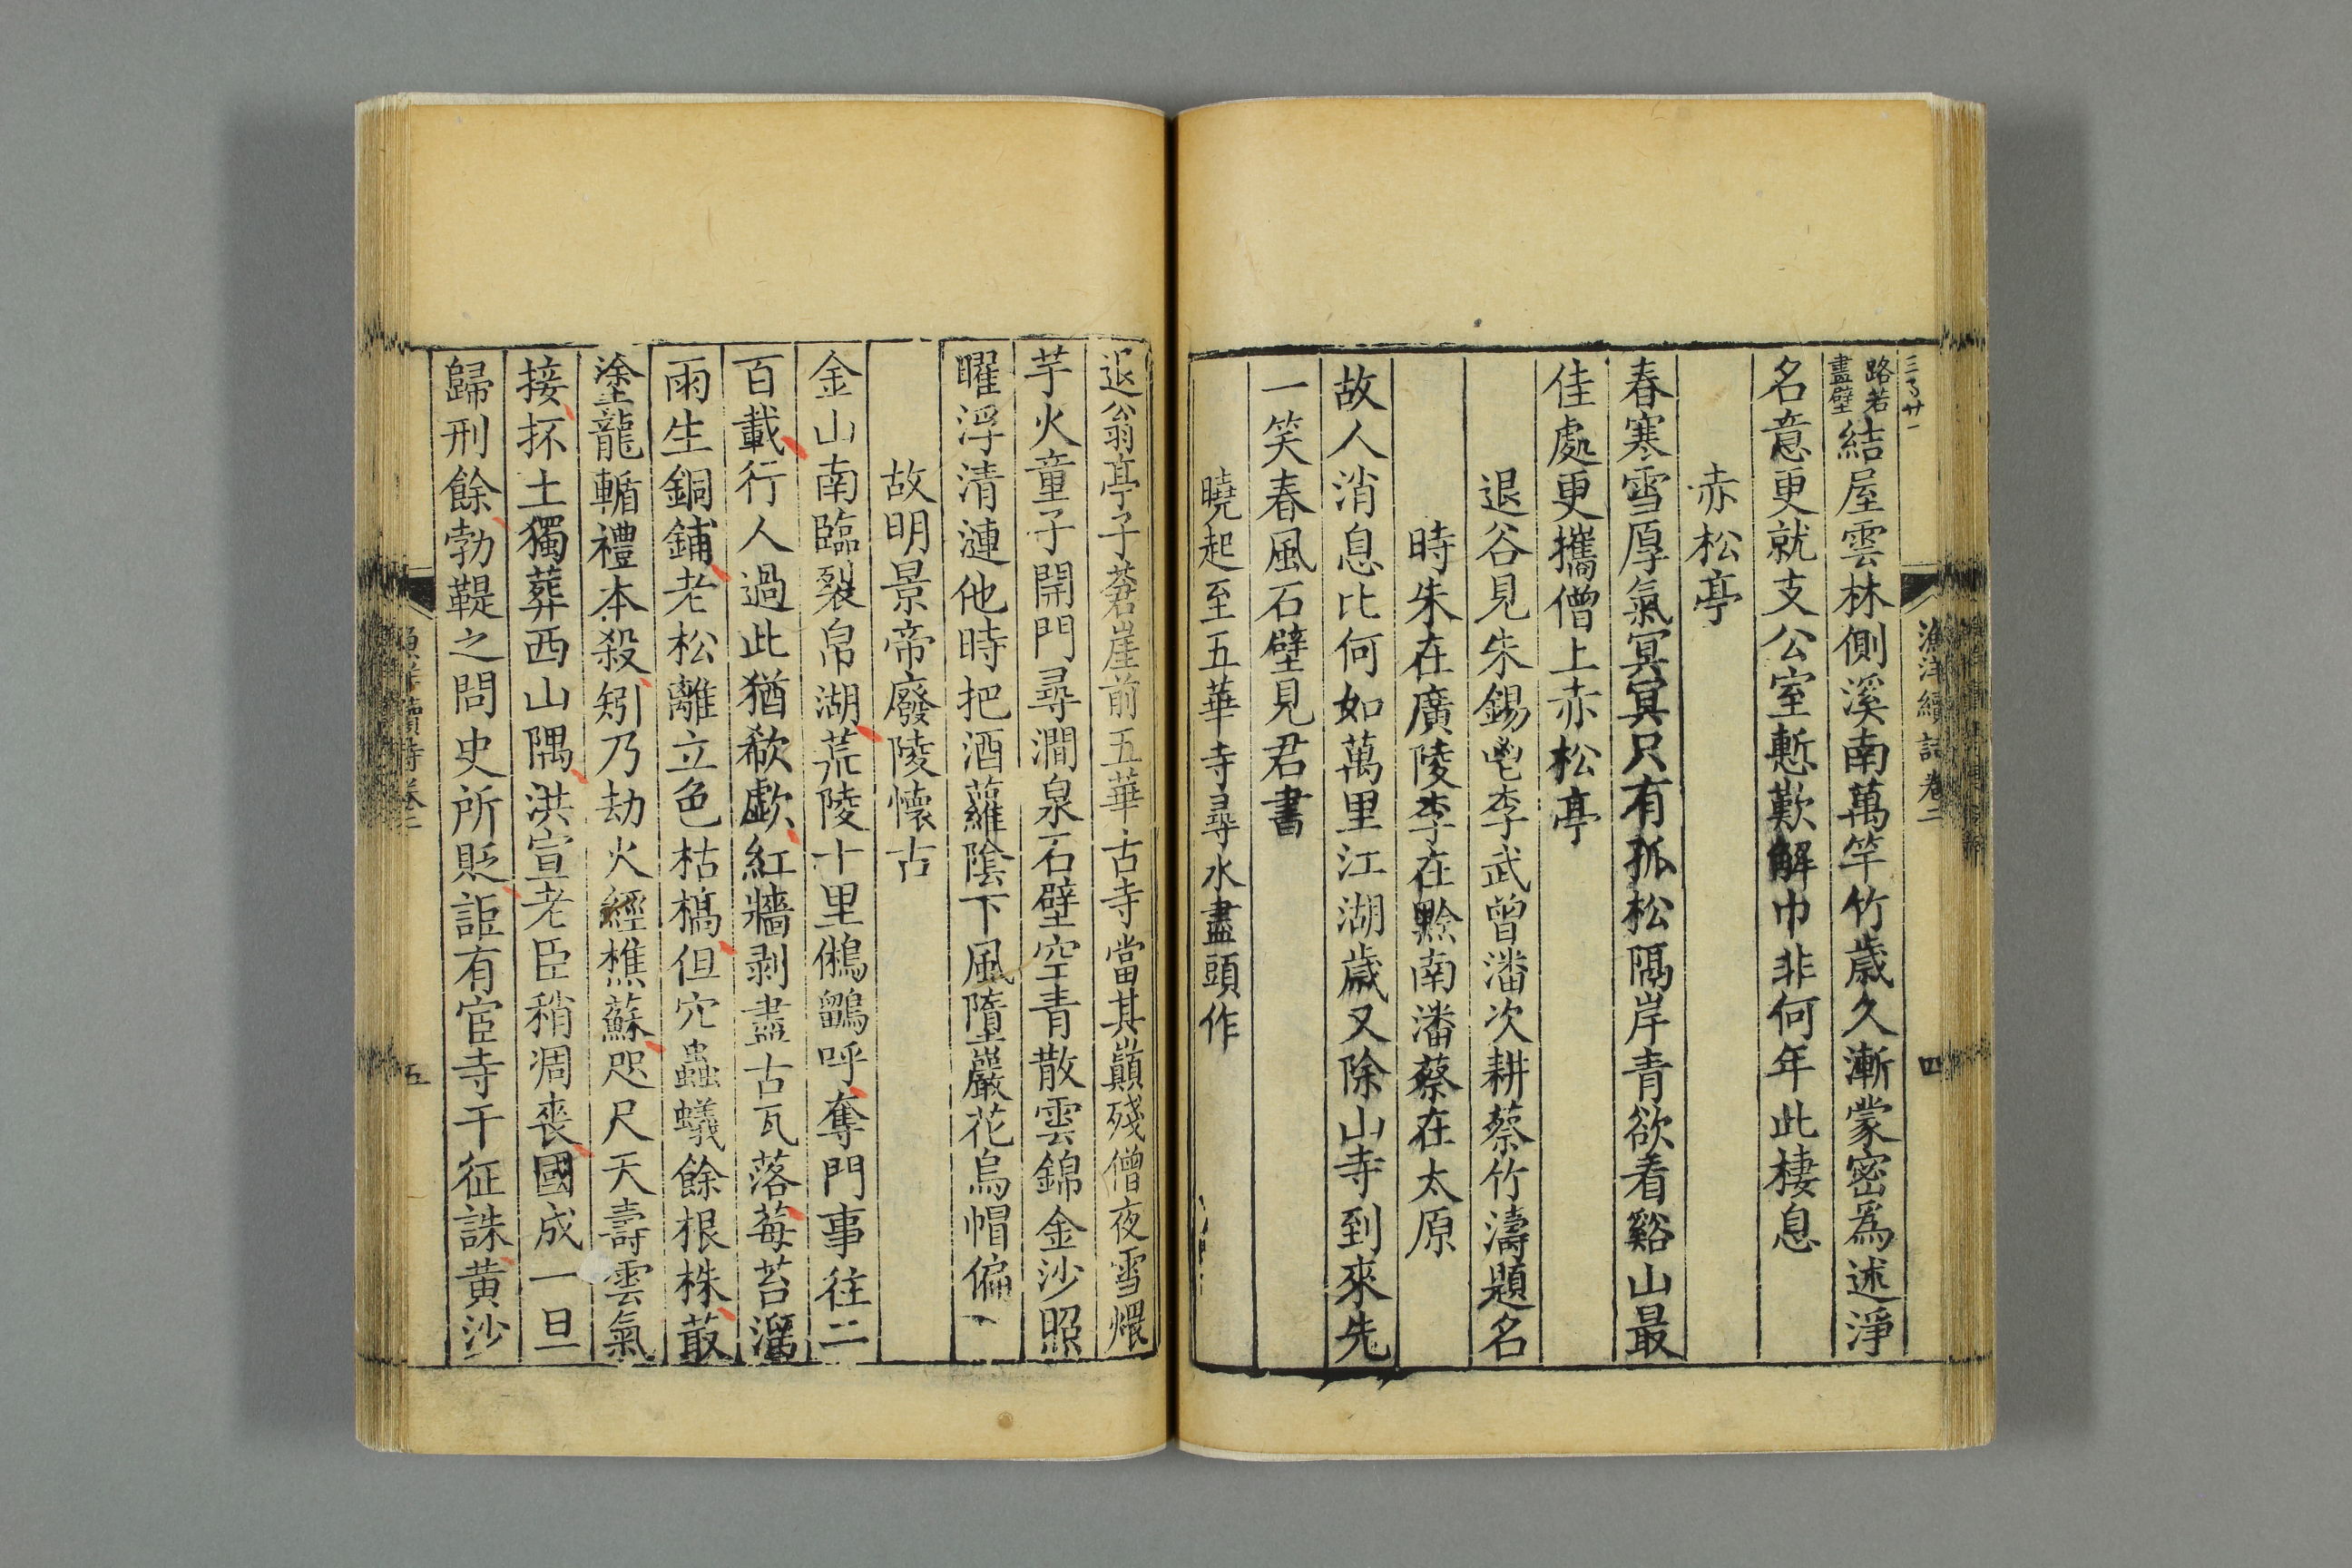 路若
盡壁
結屋雲林側溪南萬竿竹歲久漸蒙密爲述淨
名意更就支公室慙歎解巾非何年此棲息
赤松亭
春寒雪厚氣冥冥只有孤松隅岸青欲看谿山最
佳處更攜僧上赤松亭
退谷見朱錫鬯李武曾潘次耕蔡竹濤題名
時朱在廣陵李在黔南潘蔡在太原
故人消息比何如萬里江湖歲又除山寺到來先
一笑春風石壁見君書
曉起至五華寺尋水盡頭作
漁洋續詩卷二
四
退翁亭子蒼崖前五華古寺當其巔殘僧夜雪煨
芋火童子開門尋澗泉石壁空青散雲錦金沙照
曜浮清漣他時把酒蘿陰下風墮巖花烏帽偏
故明景帝廢陵懷古
金山南臨裂帛湖荒陵十里鵂鶹呼奪門事往二
百載行人過此猶欷歔紅牆剥盡古瓦落莓苔溜
雨生銅鋪老松離立色枯槁但穴蟲蟻餘根株菆
塗龍輴禮本殺矧乃劫火經樵蘇咫尺天壽雲氣
接抔土獨葬西山隅洪宣老臣稍凋喪國成一旦
歸刑餘勃鞮之問史所貶詎有宦寺干征誅黄沙
漁洋續詩卷二
五